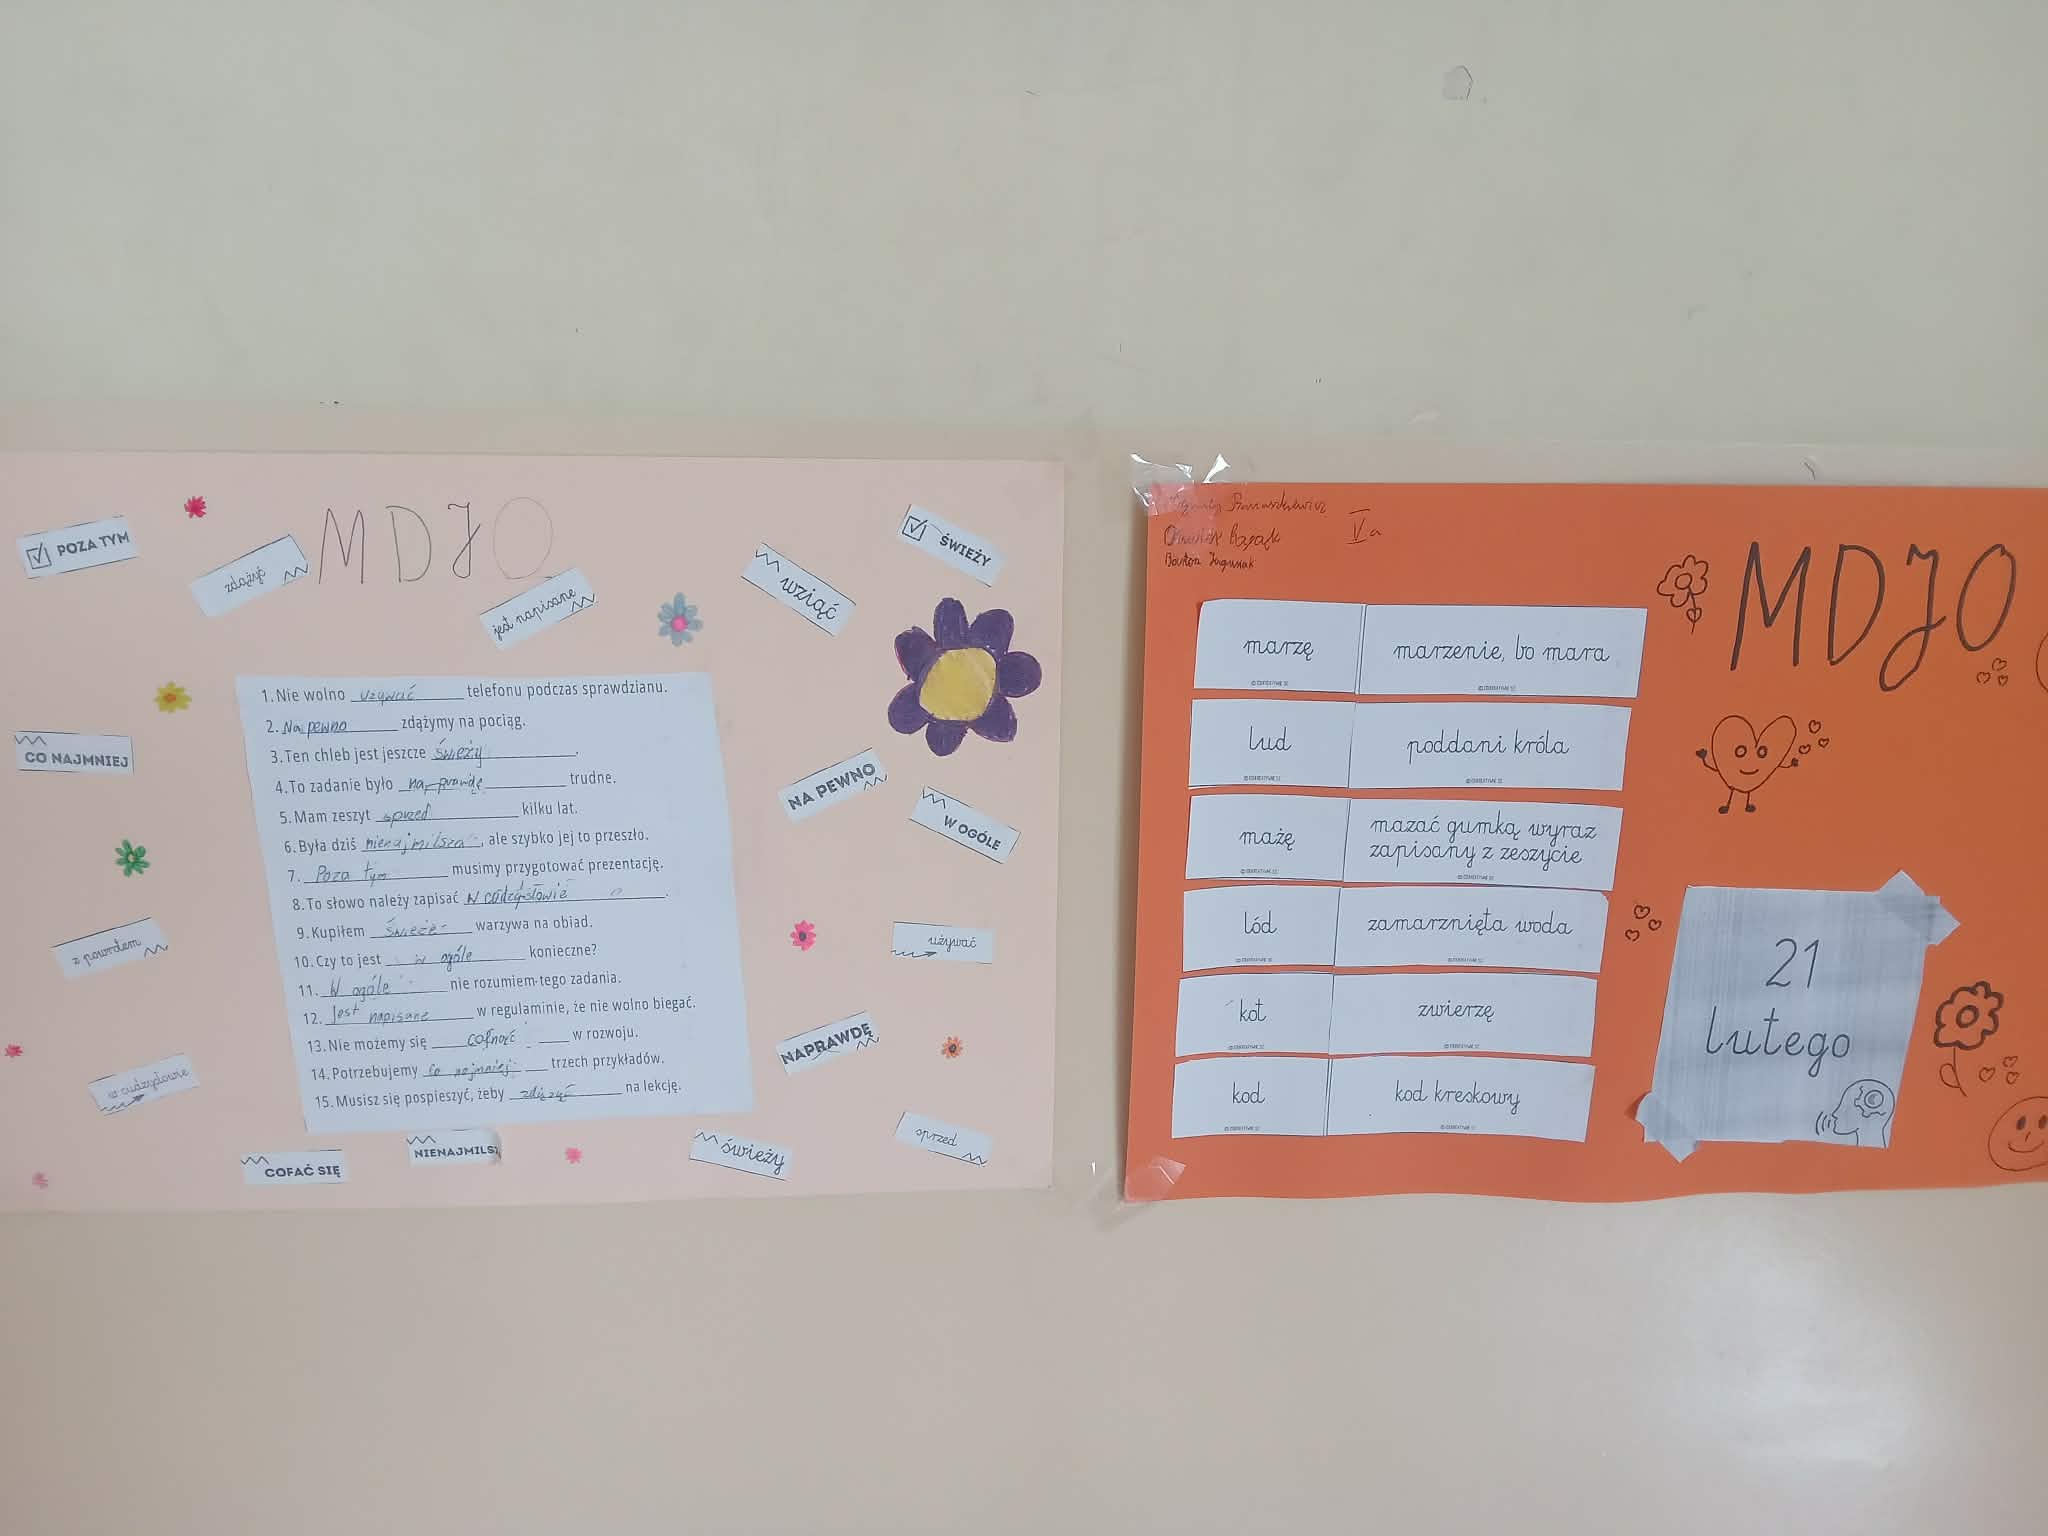 MDJO
POZA TYM
zdążyć
jest napisane
wziąć
ŚWIEŻY
CO NAJMNIEJ
NA PEWNO
W OGÓLE
z powodem
używać
w cudzysłowie
NAPRAWDĘ
COFAĆ SIĘ
NIENAJMILS
świeży
sprzed
1. Nie wolno używać telefonu podczas sprawdzianu.
2. Na pewno zdążymy na pociąg.
3. Ten chleb jest jeszcze świeży.
4. To zadanie było naprawdę trudne.
5. Mam zeszyt sprzed kilku lat.
6. Była dziś nienajmilsza, ale szybko jej to przeszło.
7. Poza tym musimy przygotować prezentację.
8. To słowo należy zapisać w cudzysłowie.
9. Kupiłem świeże warzywa na obiad.
10. Czy to jest w ogóle konieczne?
11. W ogóle nie rozumiem tego zadania.
12. Jest napisane w regulaminie, że nie wolno biegać.
13. Nie możemy się cofnąć w rozwoju.
14. Potrzebujemy co najmniej trzech przykładów.
15. Musisz się pospieszyć, żeby zdążyć na lekcję.
V a
MDJO
marzę
marzenie, bo mara
lud
poddani króla
mażę
mazać gumką wyraz
zapisany z zeszycie
lód
zamarznięta woda
kot
zwierzę
kod
kod kreskowy
21
lutego